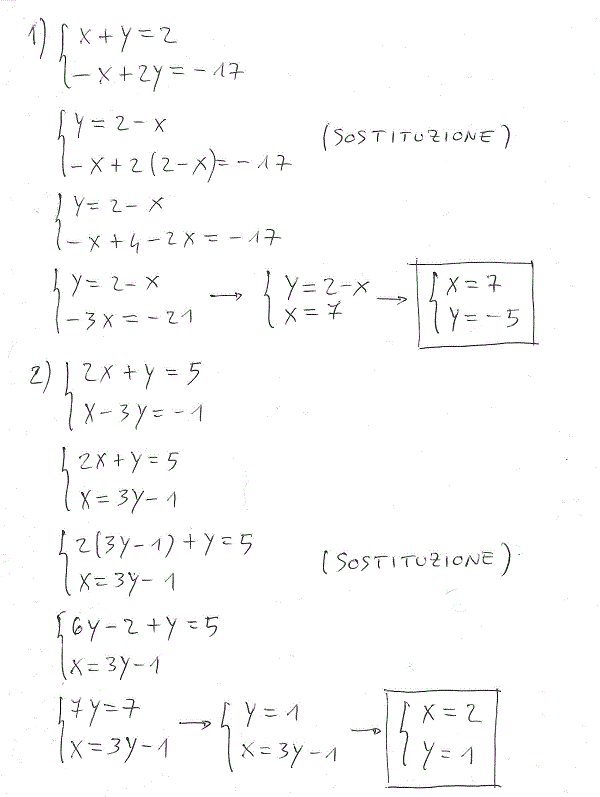 1) { x + y = 2
−x + 2y = −17
{ y = 2 − x
−x + 2(2−x) = −17 (SOSTITUZIONE)
{ y = 2 − x
−x + 4 − 2x = −17
{ y = 2 − x → { y = 2−x → { x = 7
−3x = −21 x = 7 y = −5
2) { 2x + y = 5
x − 3y = −1
{ 2x + y = 5
x = 3y − 1
{ 2(3y−1) + y = 5 (SOSTITUZIONE)
x = 3y − 1
{ 6y − 2 + y = 5
x = 3y − 1
{ 7y = 7 → { y = 1 → { x = 2
x = 3y − 1 x = 3y − 1 y = 1